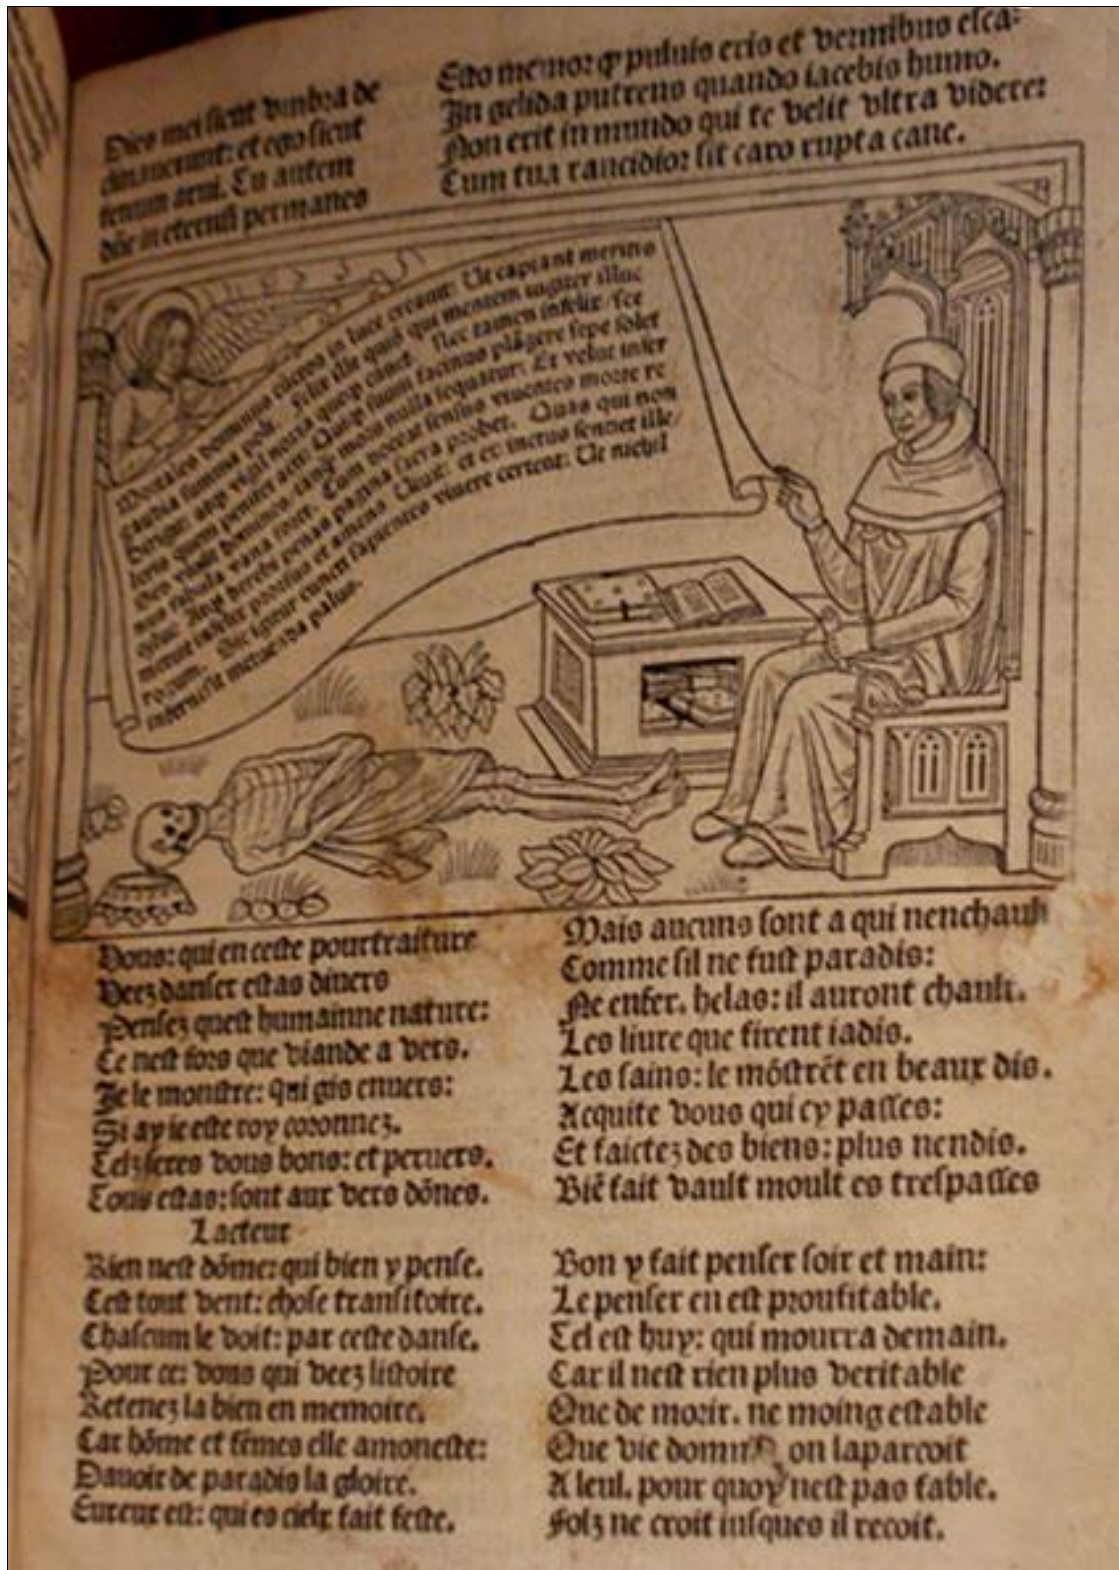 Dies mei sicut vmbra de
clinauerunt: et ego sicut
fenum arui. Tu autem
dñe in eternũ permanes
Esto memor ꝙ puluis eris et vermibus esca:
In gelida putrens quando iacebis humo.
Non erit in mundo qui te velit vltra videre:
Cum tua rancidior sit caro rupta cane.
Mortales dominus cunctos in luce creauit: Ut capiant meritis
gaudia summa poli. Felix ille quidẽ qui mentem iugiter illuc
Dirigit: atqꝫ vigil noxia queqꝫ cauet. Nec tamen infelix sce
leris quem penitet acti: Quiqꝫ suum facinus plãgere sepe solet
Sed viuũt homines: tanqꝫ mors nulla sequatur: Et velut infer
nus fabula vana foret. Cum doceat sensus viuentes morte re
solui: Atqꝫ herebi penas pagina sacra probet. Quas qui non
metuit infelix prorsus et amens Uiuit: et extinctus sentiet ille/
rogum. Sic igitur cuncti sapientes viuere certent: Ut nichil
inferni sit metuenda palus.
Vous: qui en ceste pourtraiture
Veez danser estas diuers
Pensez quest humainne nature:
Ce nest fors que viande a vers.
Je le monstre: qui gis enuers:
Si ay ie este roy coronnez.
Telz seres vous bons: et peruers.
Tous estas: sont aux vers dõnes.
Lacteur
Rien nest dõme: qui bien y pense.
Cest tout vent: chose transitoire.
Chascum le voit: par ceste danse.
Pour ce: vous qui veez listoire
Retenez la bien en memoire.
Car hõme et fẽmes elle amoneste:
Dauoir de paradis la gloire.
Eureux est: qui es cielx fait feste.
Mais aucuns sont a qui nenchault
Comme sil ne fust paradis:
Ne enfer. helas: il auront chault.
Les liure que firent iadis.
Les sains: le mõstrẽt en beaux dis.
Acquite vous qui cy passes:
Et faictez des biens: plus nendis.
Biẽ fait vault moult es trespasses
Bon y fait penser soir et main:
Le penser en est proufitable.
Tel est huy: qui mourra demain.
Car il nest rien plus veritable
Que de morir. ne moing estable
Que vie on laparcoit
A leul. pour quoy nest pas fable.
Folz ne croit iusques il recoit.